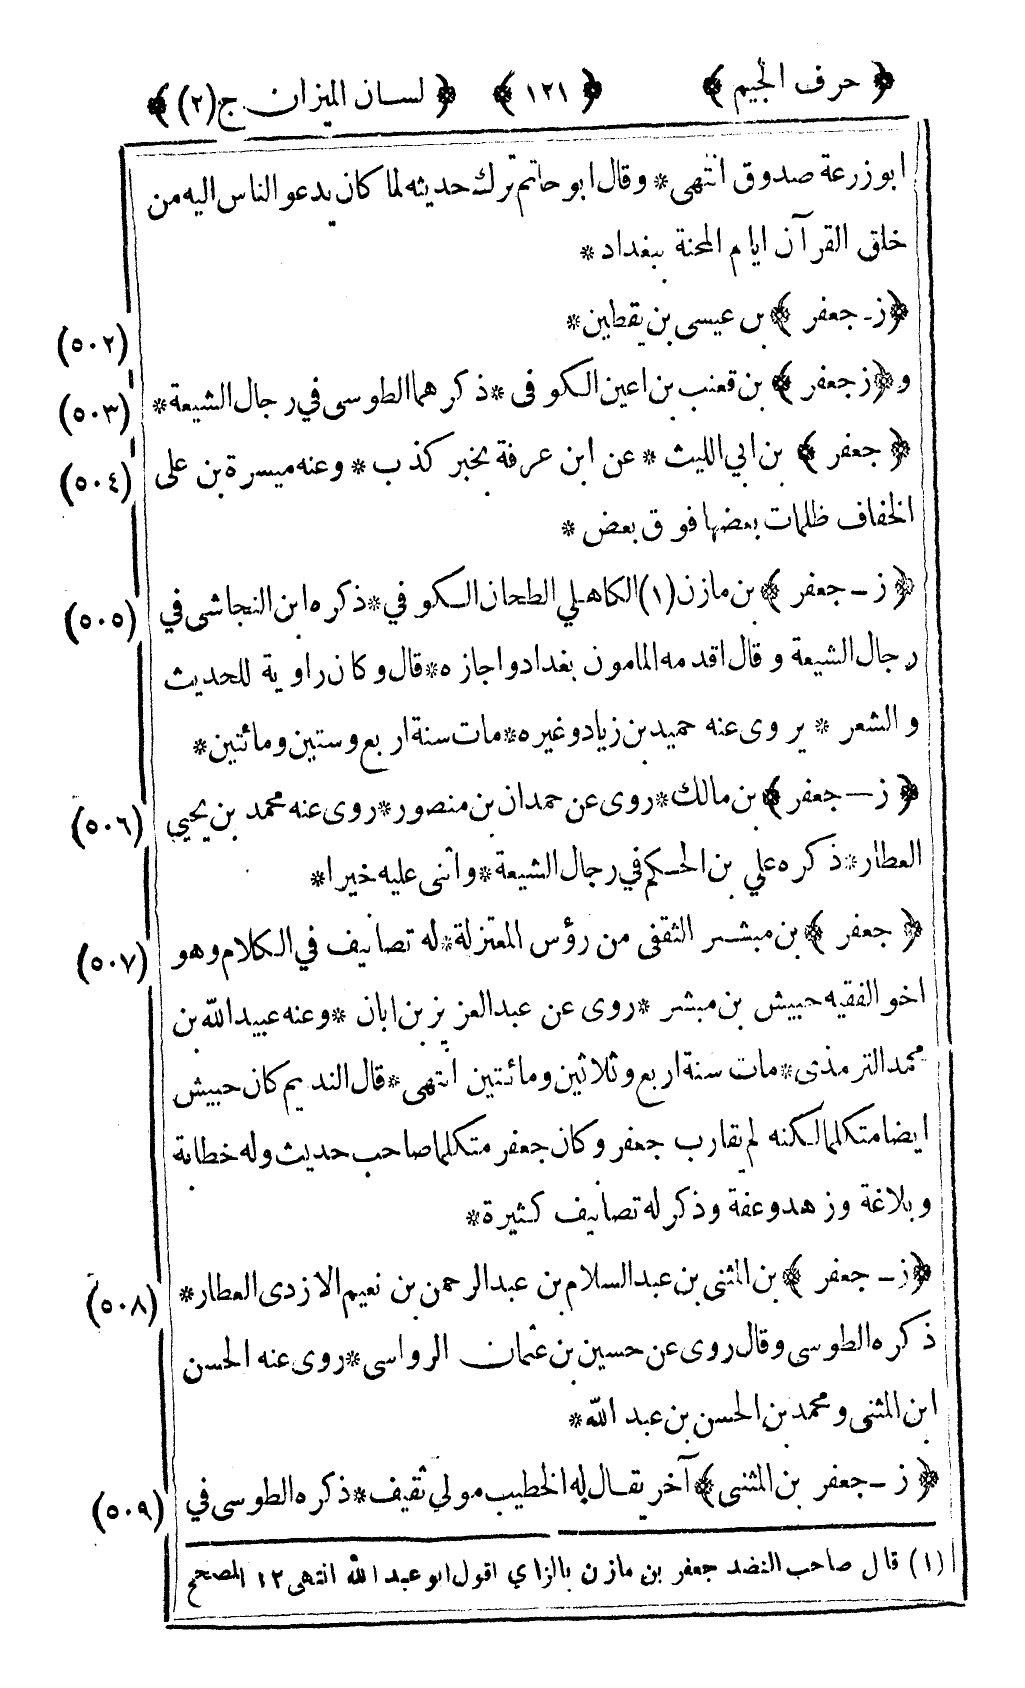 ﴿ حرف الجيم ﴾ ﴿ ١٢١ ﴾ ﴿ لسان الميزان ج(٢) ﴾
ابوزرعة صدوق انتهى * وقال ابو حاتم ترك حديثه لما كان يدعو الناس اليه من
خلق القرآن ايام المحنة ببغداد *
﴿ز- جعفر ﴾ بن عيسى بن يقطين * (٥٠٢)
و﴿ز جعفر ﴾ بن قعنب بن اعين الكوفى * ذكرهما الطوسى فى رجال الشيعة * (٥٠٣)
﴿ جعفر ﴾ بن ابي الليث * عن ابن عرفة بخبر كذب * وعنه ميسرة بن على (٥٠٤)
الخفاف ظلمات بعضها فوق بعض *
﴿ ز - جعفر ﴾ بن مازن (١) الكاهلي الطحان الكوفي * ذكره ابن النجاشى في (٥٠٥)
رجال الشيعة وقال اقدمه المامون بغداد واجازه * قال وكان راوية للحديث
والشعر * يروى عنه حميد بن زياد وغيره * مات سنة اربع وستين ومائتين *
﴿ ز — جعفر ﴾ بن مالك * روى عن حمدان بن منصور * روى عنه محمد بن يحيى (٥٠٦)
العطار * ذكره علي بن الحكم في رجال الشيعة * واثنى عليه خيرا *
﴿ جعفر ﴾ بن مبشر الثقفى من رؤس المعتزلة * له تصانيف في الكلام وهو (٥٠٧)
اخو الفقيه حبيش بن مبشر * روى عن عبد العزيز بن ابان * وعنه عبيد الله بن
محمد الترمذى * مات سنة اربع وثلاثين ومائتين انتهى * قال النديم كان حبيش
ايضا متكلما لكنه لم يقارب جعفر وكان جعفر متكلما صاحب حديث وله خطابة
وبلاغة وزهد وعفة وذكر له تصانيف كثيرة *
﴿ز - جعفر ﴾ بن المثنى بن عبد السلام بن عبد الرحمن بن نعيم الازدى العطار * (٥٠٨)
ذكره الطوسى وقال روى عن حسين بن عثمان الرواسى * روى عنه الحسن
ابن المثنى ومحمد بن الحسن بن عبد الله *
﴿ ز - جعفر بن المثنى ﴾ آخر يقال له الخطيب مولي ثقيف * ذكره الطوسى في (٥٠٩)
(١) قال صاحب النضد جعفر بن مازن بالزاي اقول ابو عبد الله انتهى ١٢ المصحح